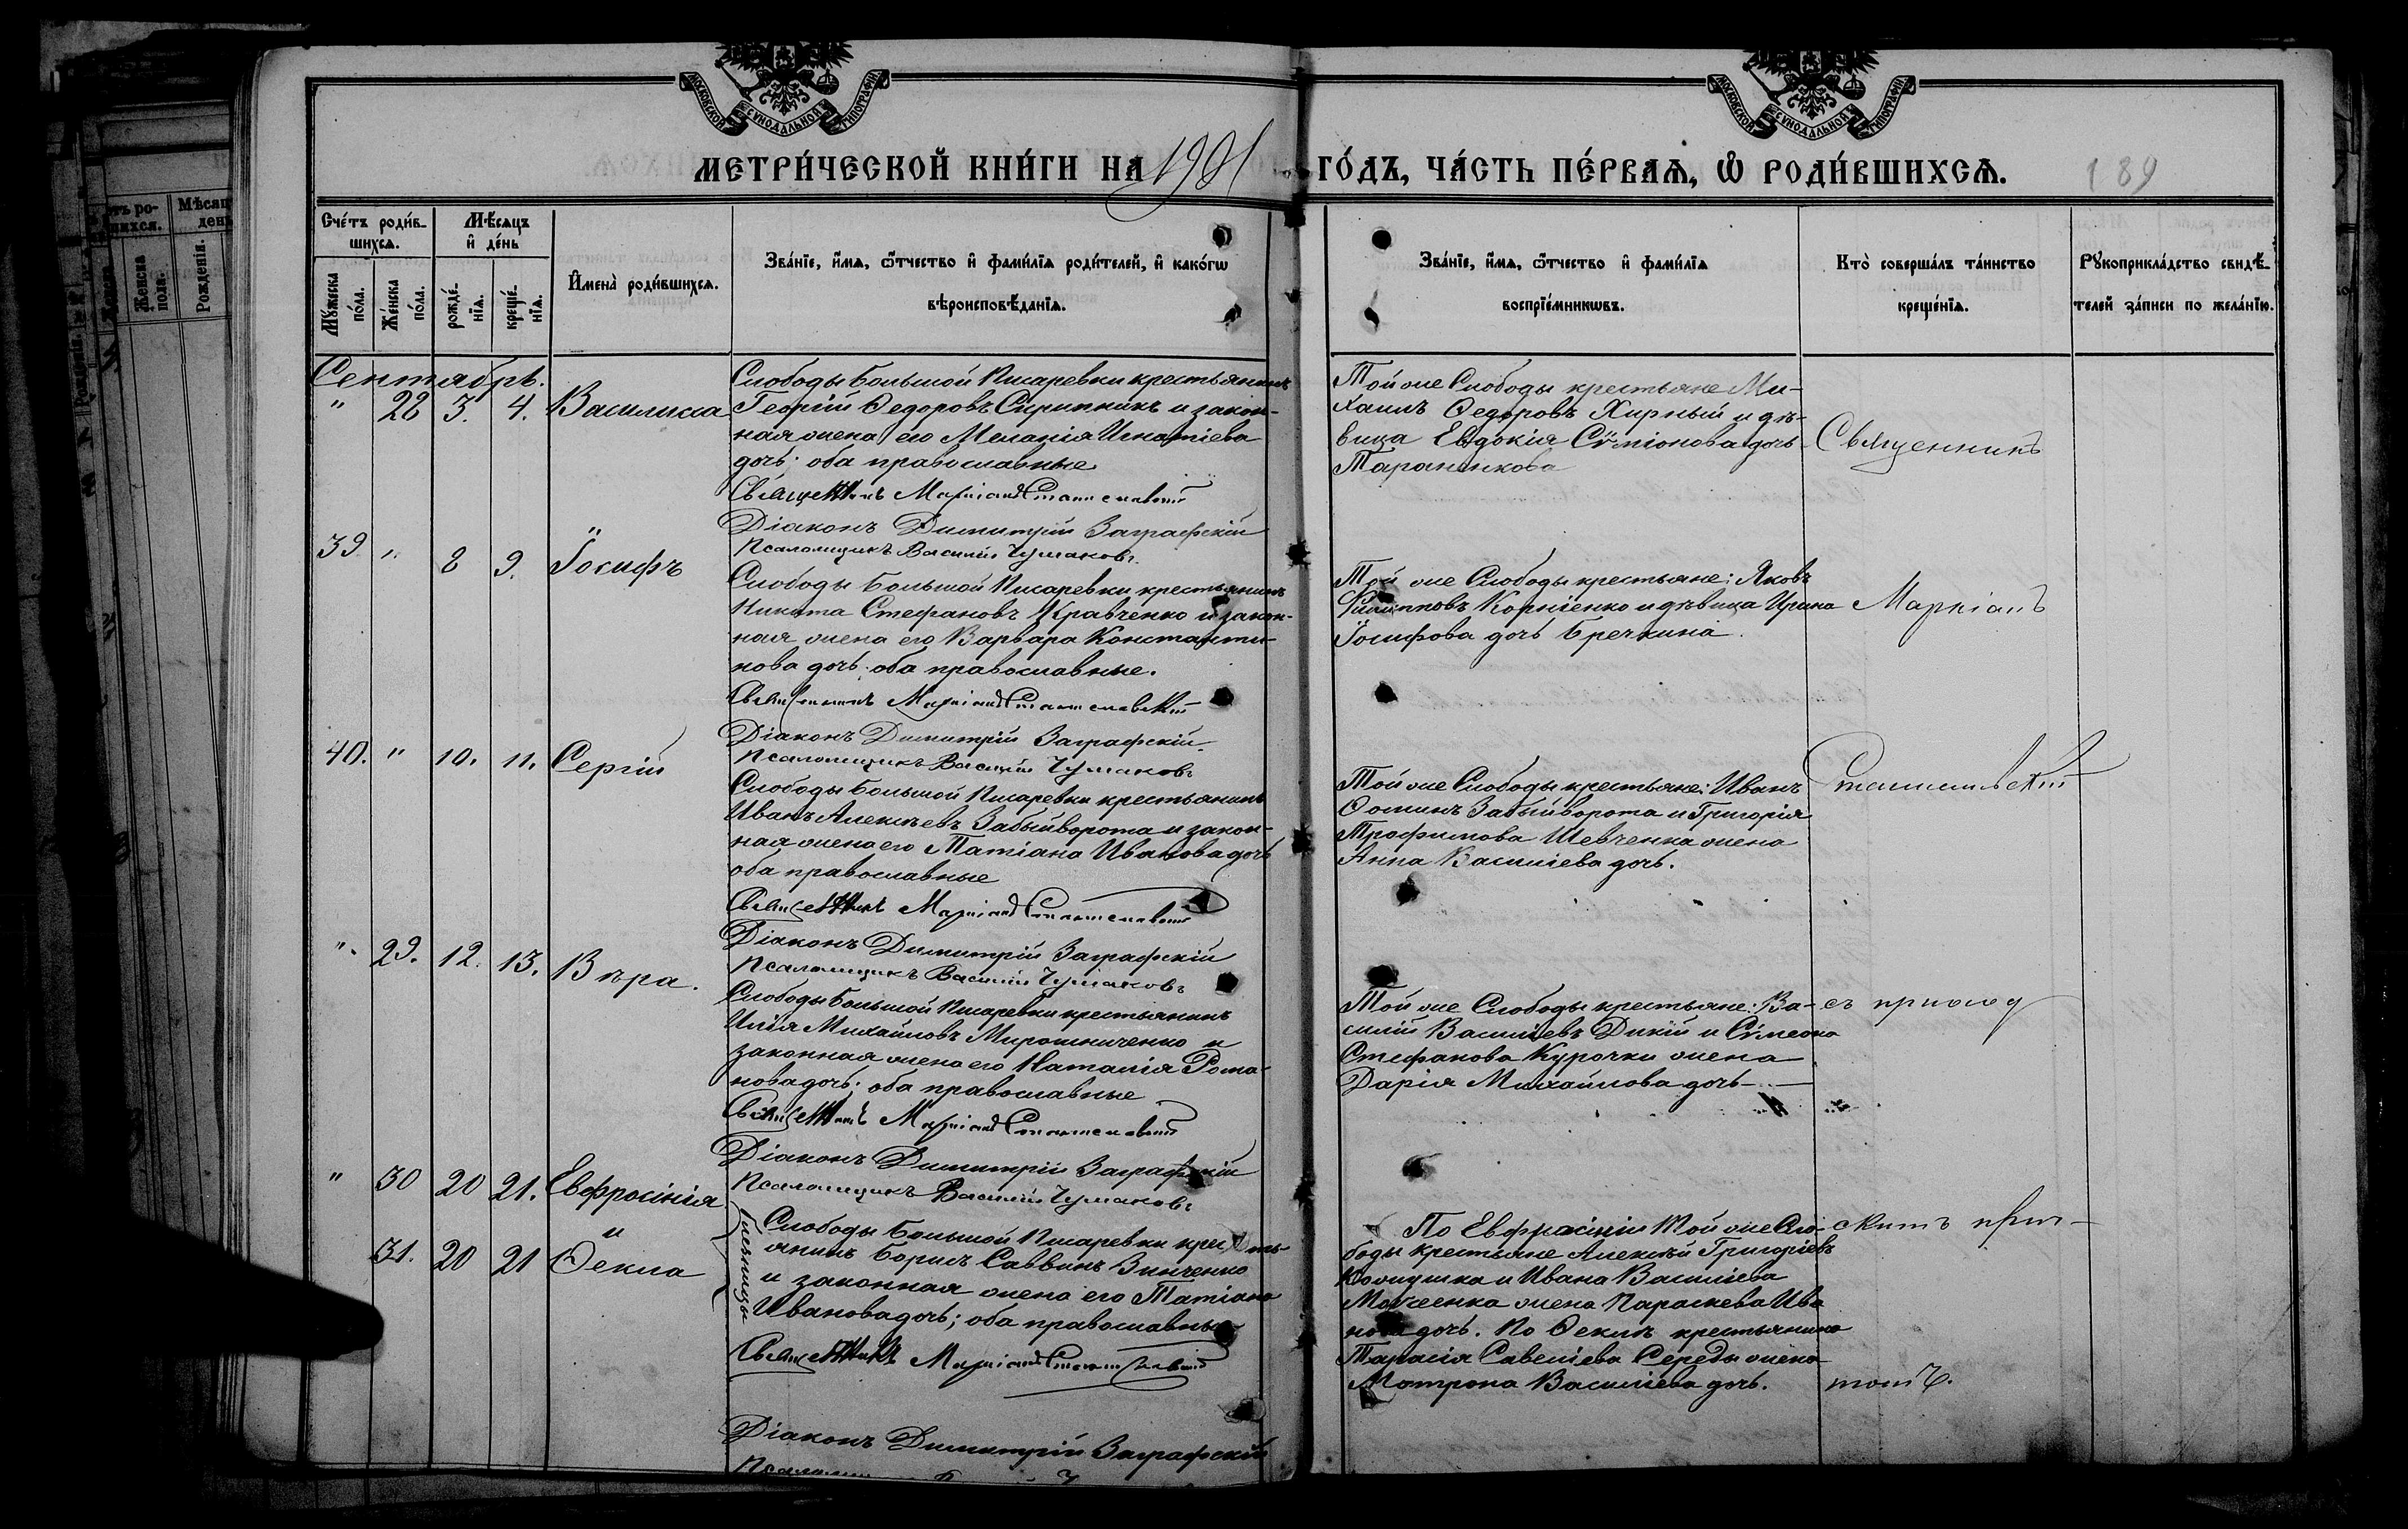 МОСКОВСКОЙ СУНОДАЛЬНОЙ ТИПОГРАФІИ
МОСКОВСКОЙ СУНОДАЛЬНОЙ ТИПОГРАФІИ
МЕТРИ́ЧЕСКОЙ КНИ́ГИ НА 1901 ГО́ДЪ, ЧА́СТЬ ПЕ́РВАѦ, Ѽ РОДИ́ВШИХСѦ.
189
Сче́тъ роди́в-
шихсѧ.
Мѣ́сѧцъ
и҆ де́нь
Мꙋ́жеска
по́ла.
Же́нска
по́ла.
рожде́-
нїѧ.
креще́-
нїѧ.
И҆мена̀ роди́вшихсѧ.
Зва́нїе, и҆́мѧ, ѻ҆́тчество и҆ фами́лїѧ роди́телей, и҆ како́гѡ
вѣроисповѣ́данїѧ.
Зва́нїе, и҆́мѧ, ѻ҆́тчество и҆ фами́лїѧ
воспрїе́мникѡвъ.
Кто̀ соверша́лъ та́инство
креще́нїѧ.
Рꙋкоприкла́дство свидѣ́-
телей за́писи по жела́нїю.
Сентябрь.
" 28 3. 4. Василисса
Слободы Большой Писаревки крестьянинъ
Георгій Ѳедоровъ Скрипникъ и закон-
ная жена его Меланія Игнатіева
дочь; оба православные
Священникъ Маркіанъ Станиславскій
Діаконъ Димитрій Заграфскій
Псаломщикъ Василій Чумаковъ
Той же Слободы крестьяне Ми-
хаилъ Ѳедоровъ Хирный и дѣ-
вица Евдокія Сѵміонова дочь
Тараненкова
Священникъ
39 " 8 9. Іосифъ
Слободы Большой Писаревки крестьянинъ
Никита Стефановъ Кравченко и закон-
ная жена его Варвара Константи-
нова дочь; оба православные.
Священникъ Маркіанъ Станиславскій
Діаконъ Димитрій Заграфскій
Псаломщикъ Василій Чумаковъ
Той же Слободы крестьяне: Яковъ
Филипповъ Корніенко и дѣвица Ирина
Іосифова дочь Бречкина.
Маркіанъ
40. " 10. 11. Сергій
Слободы Большой Писаревки крестьянинъ
Иванъ Алексѣевъ Забыйворота и закон-
ная жена его Татіана Иванова дочь
оба православные
Священникъ Маркіанъ Станиславскій
Діаконъ Димитрій Заграфскій
Псаломщикъ Василій Чумаковъ
Той же Слободы крестьяне: Иванъ
Ѳоминъ Забыйворота и Григорія
Трофимова Шевченка жена
Анна Васильева дочь.
Станиславскій
" 29. 12. 13. Вѣра.
Слободы Большой Писаревки крестьянинъ
Илія Михайловъ Мирошниченко и
законная жена его Наталія Рома-
нова дочь; оба православные
Священникъ Маркіанъ Станиславскій
Діаконъ Димитрій Заграфскій
Псаломщикъ Василій Чумаковъ
Той же Слободы крестьяне: Ва-
силій Васильевъ Дикій и Сѵмеона
Стефанова Курочки жена
Дарія Михайлова дочь
съ приход
" 30 20 21. Евфросінія
и
31. 20 21 Ѳекла
близницы
Слободы Большой Писаревки кресть-
янинъ Борисъ Саввинъ Зинченко
и законная жена его Татіана
Иванова дочь; оба православные
Священникъ Маркіанъ Станиславскій
Діаконъ Димитрій Заграфскій
По Евфросініи той же Сло-
боды крестьяне Алексѣй Григоріевъ
и Ивана Васильева
жена Параскева Ива
нова дочь. По Ѳеклѣ крестьянина
Тарасія Савеліева Середы жена
Матрона Васильева дочь.
скимъ прич-
томъ.